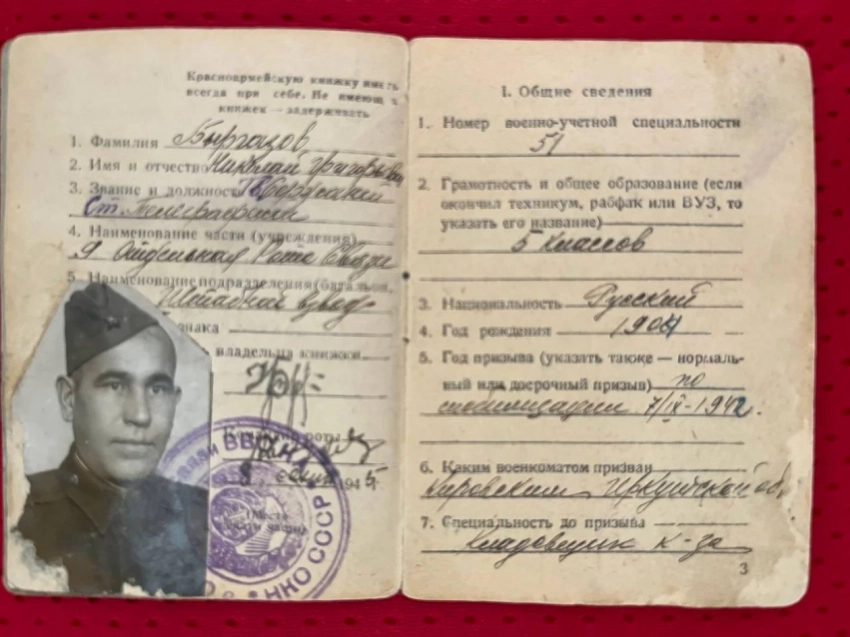 Красноармейскую книжку иметь
всегда при себе. Не имеющих
книжек — задерживать
1. Фамилия
2. Имя и отчество Николай Григорьевич
3. Звание и должность Сержант
Ст. Телеграфист
4. Наименование части (учреждения)
9 Отдельная Рота Связи
5. Наименование подразделения (батальон,
Штабной взвод
знака
владельца книжки
Командир роты
8, 1945
НКО СССР
1. Общие сведения
1. Номер военно-учетной специальности
51
2. Грамотность и общее образование (если
окончил техникум, рабфак или ВУЗ, то
указать его название)
5 классов
3. Национальность Русский
4. Год рождения
5. Год призыва (указать также — нормаль-
ный или досрочный призыв) по
мобилизации 7/IX-1942.
6. Каким военкоматом призван
Кировским Иркутской об.
7. Специальность до призыва
Кладовщик к-за
3